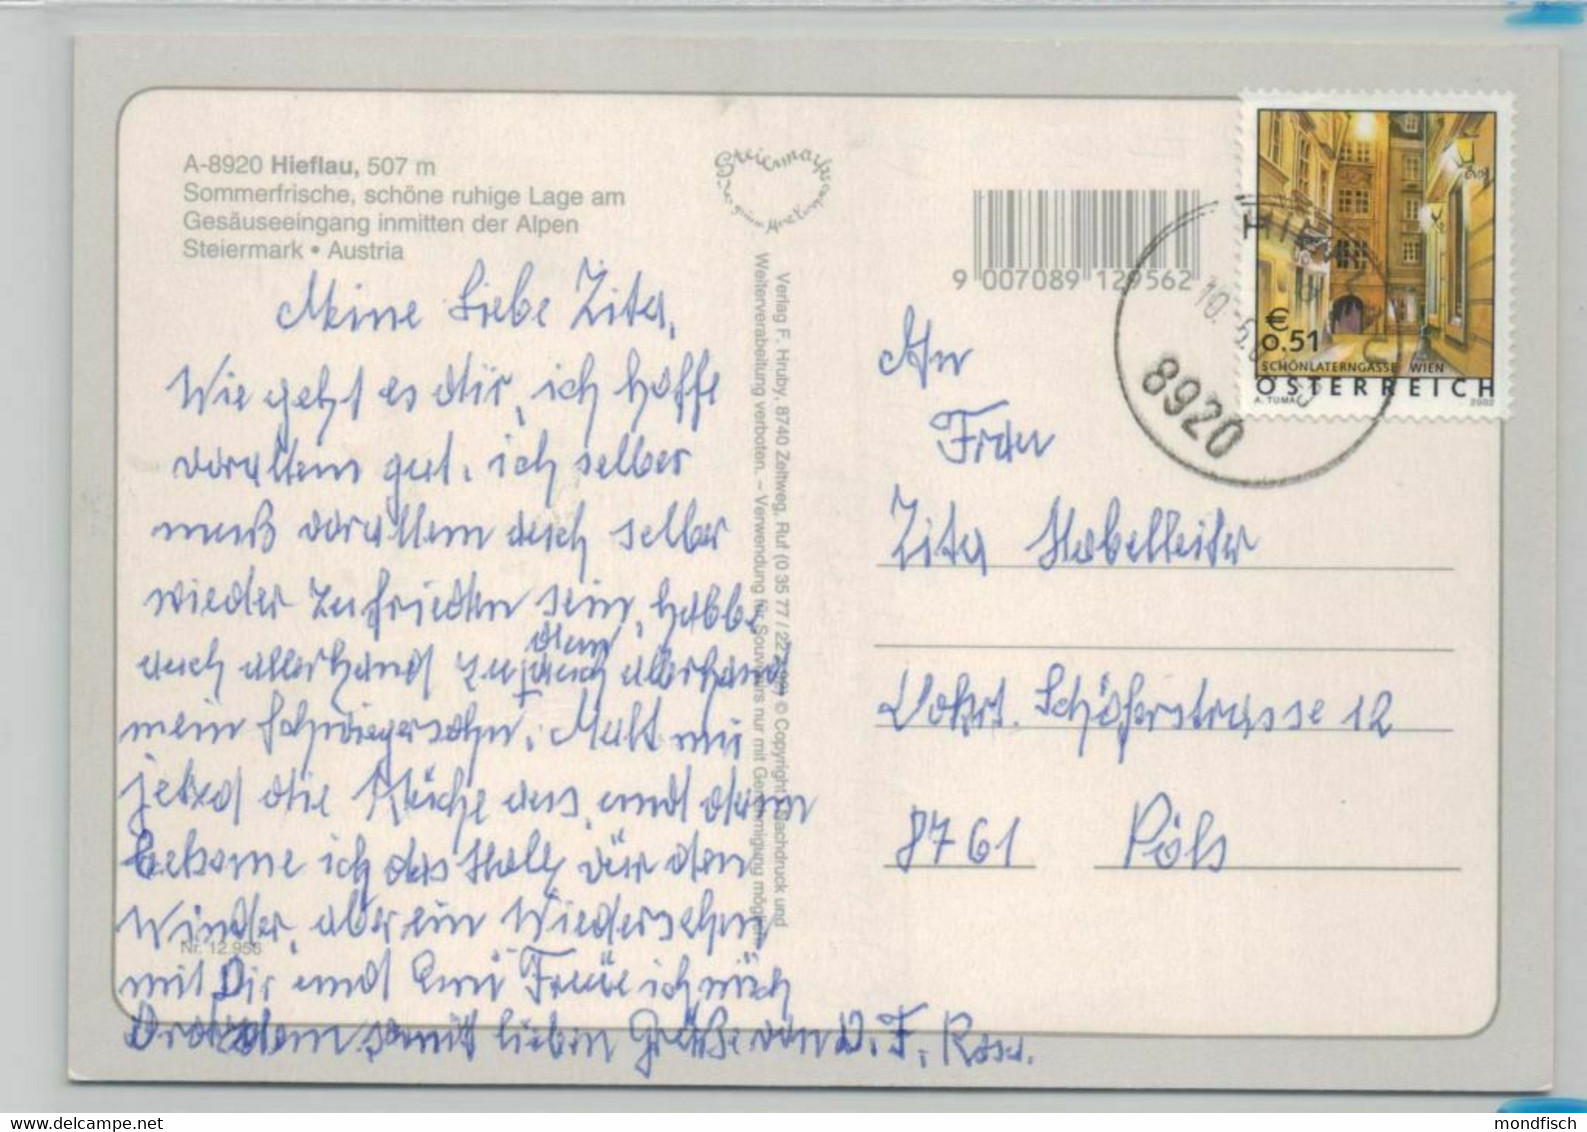 A-8920 Hieflau, 507 m
Sommerfrische, schöne ruhige Lage am
Gesäuseeingang inmitten der Alpen
Steiermark • Austria
Meine Liebe Zita,
Wie geht es dir, ich hoffe
vorallem gut. ich selber
muß vorallem auch selber
wieder zufrieden sein, habbe
auch allerhand zu
allerhand
mein Schwiegersohn. Malt mir
jetzd die Küche aus, und dann
bekome ich das Holz vür den
Winder, aber ein Wiedersehn
mit Dir und Freue ich mich
Drotzdem. somit lieben Grüße von D. F. Rosa.
Nr. 12.956
Steiermark
Das grüne Herz Europas
Verlag F. Hruby, 8740 Zeltweg, Ruf (0 35 77 / © Copyright Nachdruck und
Weiterverarbeitung verboten. – Verwendung für Souvenirs nur mit Genehmigung möglich.
9 007089 129562
€
0.51
SCHÖNLATERNGASSE WIEN
ÖSTERREICH
A. TUMA 2002
10. 5.
8920
An
Frau
Zita Habelleiter
Schöferstrasse 12
8761 Pöls
mondfisch